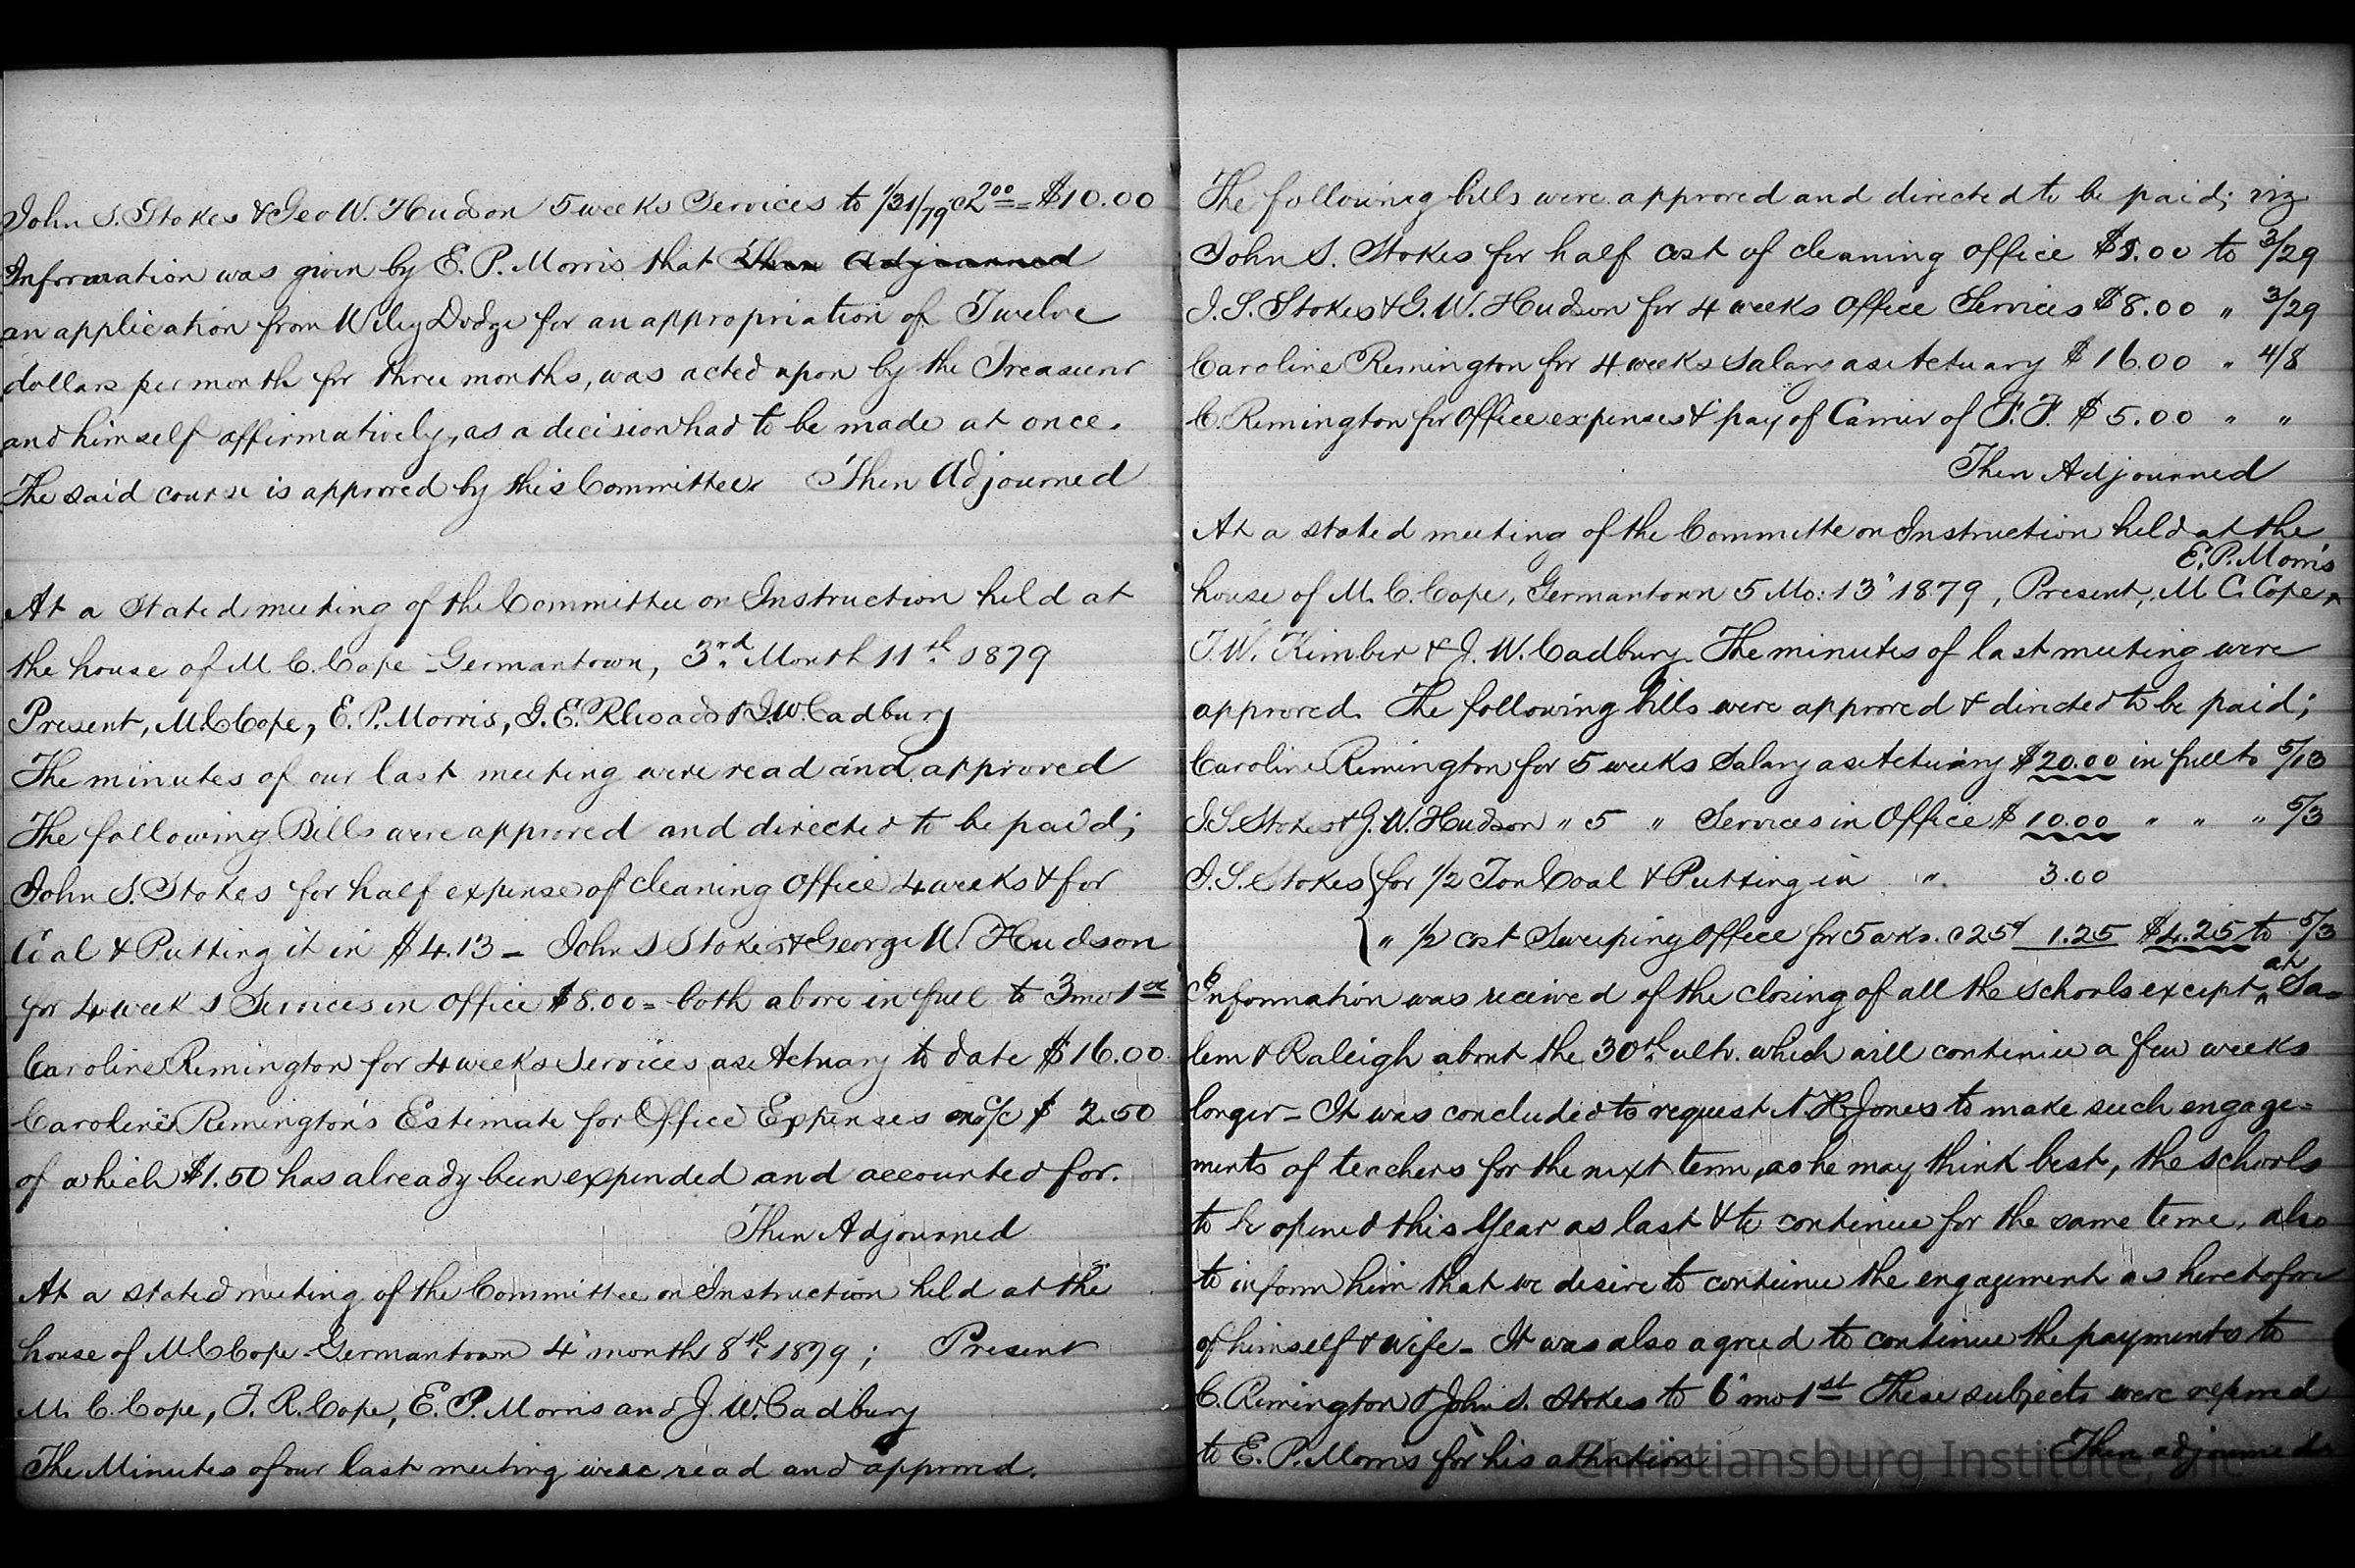 John S. Stokes & Geo W. Hudson 5 weeks Services to 1/31/79 @ 2.00 = $10.00
Information was given by E. P. Morris that Then Adjourned
an application from Wiley Dodge for an appropriation of Twelve
dollars per month for three months, was acted upon by the Treasurer
and himself affirmatively, as a decision had to be made at once.
The said course is approved by this Committee. Then Adjourned
At a Stated meeting of the Committee on Instruction held at
the house of M. C. Cope Germantown, 3rd Month 11th 1879
Present, M. C. Cope, E. P. Morris, J. E. Rhoads & J. W. Cadbury
The minutes of our last meeting were read and approved
The following Bills were approved and directed to be paid;
John S. Stokes for half expense of cleaning Office 4 weeks & for
Coal & Putting it in $4.13 – John S Stokes & George W. Hudson
for 4 weeks Services in Office $8.00 = both above in full to 3 mo 1st
Caroline Remington for 4 weeks Services as Actuary to date $16.00
Caroline Remington's Estimate for Office Expenses on a/c $ 2.50
of which $1.50 has already been expended and accounted for.
Then Adjourned
At a stated meeting of the Committee on Instruction held at the
house of M. C. Cope Germantown 4 month 8th 1879; Present
M. C. Cope, F. R. Cope, E. P. Morris and J. W. Cadbury
The Minutes of our last meeting were read and approved.
The following bills were approved and directed to be paid; viz
John S. Stokes for half cost of cleaning Office $1.00 to 3/29
J. S. Stokes & G. W. Hudson for 4 weeks Office Services $8.00 " 3/29
Caroline Remington for 4 weeks Salary as Actuary $16.00 " 4/8
C. Remington for Office expenses & pay of Carrier of F. F. $5.00 " "
Then Adjourned
At a stated meeting of the Committe on Instruction held at the
E. P. Morris
house of M. C. Cope, Germantown 5 Mo: 13" 1879, Present, M. C. Cope, ^
T. W. Kimber & J. W. Cadbury. The minutes of last meeting were
approved. The following bills were approved & directed to be paid;
Caroline Remington for 5 weeks Salary as Actuary $20.00 in full to 5/13
J. S. Stokes & G. W. Hudson " 5 " Services in Office $10.00 " " " 5/3
J. S. Stokes { for 1/2 Ton Coal & Putting in " 3.00
{ " 1/2 cost Sweeping Office for 5 wks. @ 25¢ 1.25 $4.25 to 5/3
at
Information was received of the closing of all the schools except ^ Sa=
lem & Raleigh about the 30th ulto. which will continue a few weeks
longer – It was concluded to request N H Jones to make such engage=
ments of teachers for the next term, as he may think best, the schools
to be opened this Year as last & to continue for the same time, also
to inform him that we desire to continue the engagement as heretofore
of himself & wife – It was also agreed to continue the payments to
C. Remington & John S. Stokes to 6 mo 1st These subjects were referred
to E. P. Morris for his attention Then adjourned
Christiansburg Institute, Inc